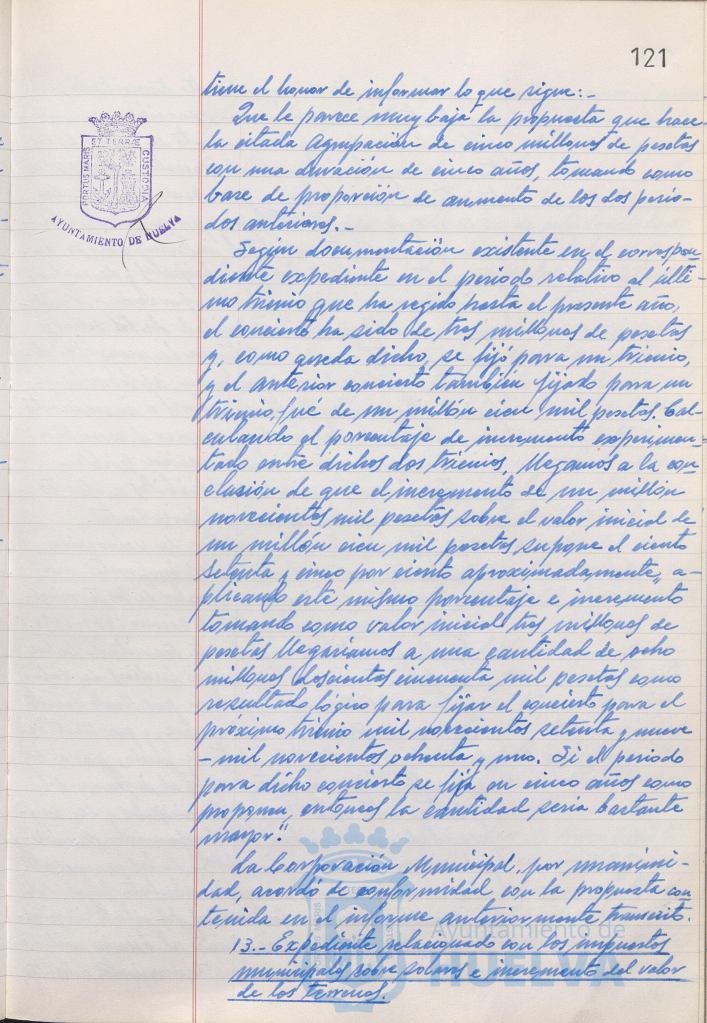 121
tiene el honor de informar lo que sigue:-
Que le parece muy baja la propuesta que hace
la citada Agrupación de cinco millones de pesetas
con una duración de cinco años, tomando como
base de proporción de aumento de los dos perio-
dos anteriores.-
Según documentación existente en el correspon-
diente expediente en el período relativo al últi-
mo trienio que ha regido hasta el presente año,
el concierto ha sido de tres millones de pesetas
y, como queda dicho, se fijó para un trienio,
y el anterior concierto tambien fijado para un
trienio, fué de un millón cien mil pesetas. Cal-
culando el porcentaje de incremento experimen-
tado entre dichos dos trienios, llegamos a la con-
clusión de que el incremento de un millón
novecientos mil pesetas sobre el valor inicial de
un millón cien mil pesetas supone el ciento
setenta y cinco por ciento aproximadamente, a-
plicando este mismo porcentaje e incremento
tomando como valor inicial tres millones de
pesetas llegaríamos a una cantidad de ocho
millones doscientos cincuenta mil pesetas como
resultado lógico para fijar el concierto para el
próximo trienio mil novecientos setenta y nueve
-mil novecientos ochenta y uno. Si el periodo
para dicho concierto se fija en cinco años como
proponen, entonces la cantidad sería bastante
mayor."
La Corporación Municipal, por unanimi-
dad, acordó de conformidad con la propuesta con
tenida en el informe anteriormente transcrito.
13.- Expediente relacionado con los impuestos
municipales sobre solares e incremento del valor
de los terrenos.
PORTUS MARIS ET TERRAE CUSTODIA
AYUNTAMIENTO DE HUELVA
Ayuntamiento de
HUELVA